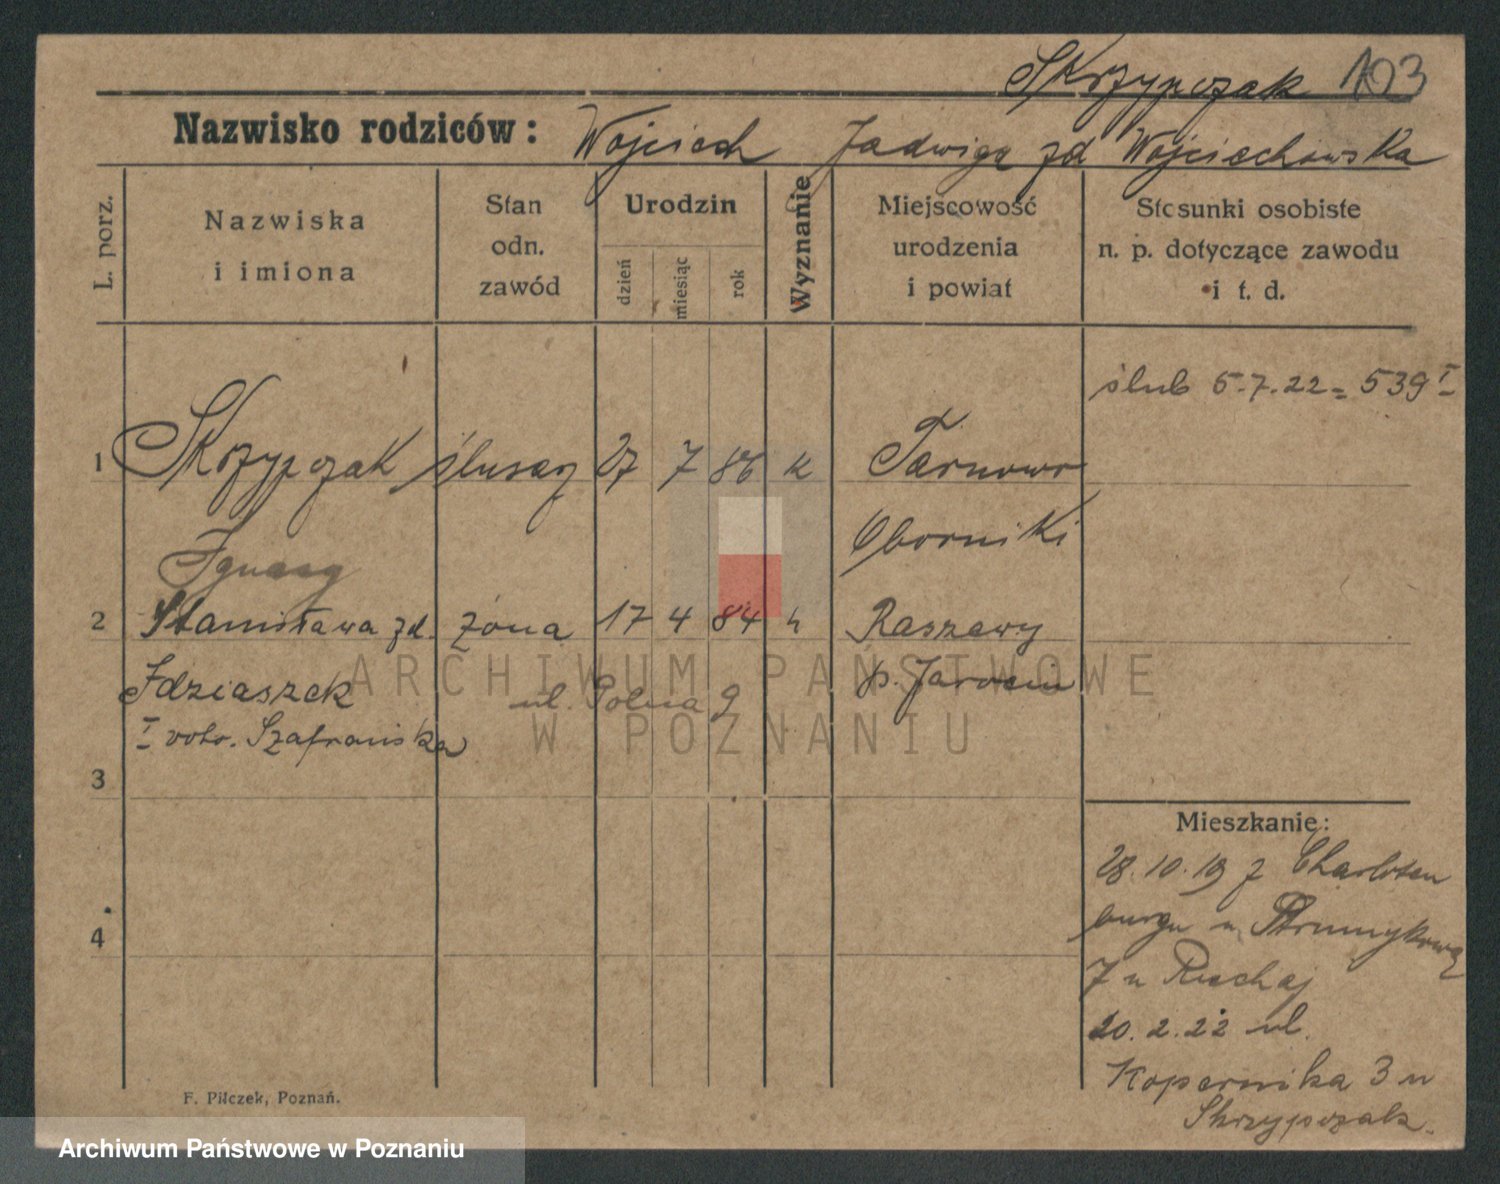 Skrzypczak 103
Nazwisko rodziców: Wojciech Jadwiga zd Wojciechowska
L. porz.
Nazwiska
i imiona
Stan
odn.
zawód
Urodzin
dzień
miesiąc
rok
Wyznanie
Miejscowość
urodzenia
i powiat
Stosunki osobiste
n. p. dotyczące zawodu
i t. d.
ślub 5.7.22 = 539 I
1 Skrzypczak ślusarz 27 7 86 k Tarnowo
Ignacy Oborniki
2 Stanisława zd. żona 17 4 84 k Raszewy
Idziaszek p. Jarocin
ul. Polna 9
I voto. Szafrańska
3
Mieszkanie:
28.10.19 z Charloten
burga u. Strumykowa
7 u Ruchaj
20.2.22 ul.
Kopernika 3 u
Skrzypczak.
4
F. Pilczek, Poznań.
ARCHIWUM PAŃSTWOWE
W POZNANIU
Archiwum Państwowe w Poznaniu